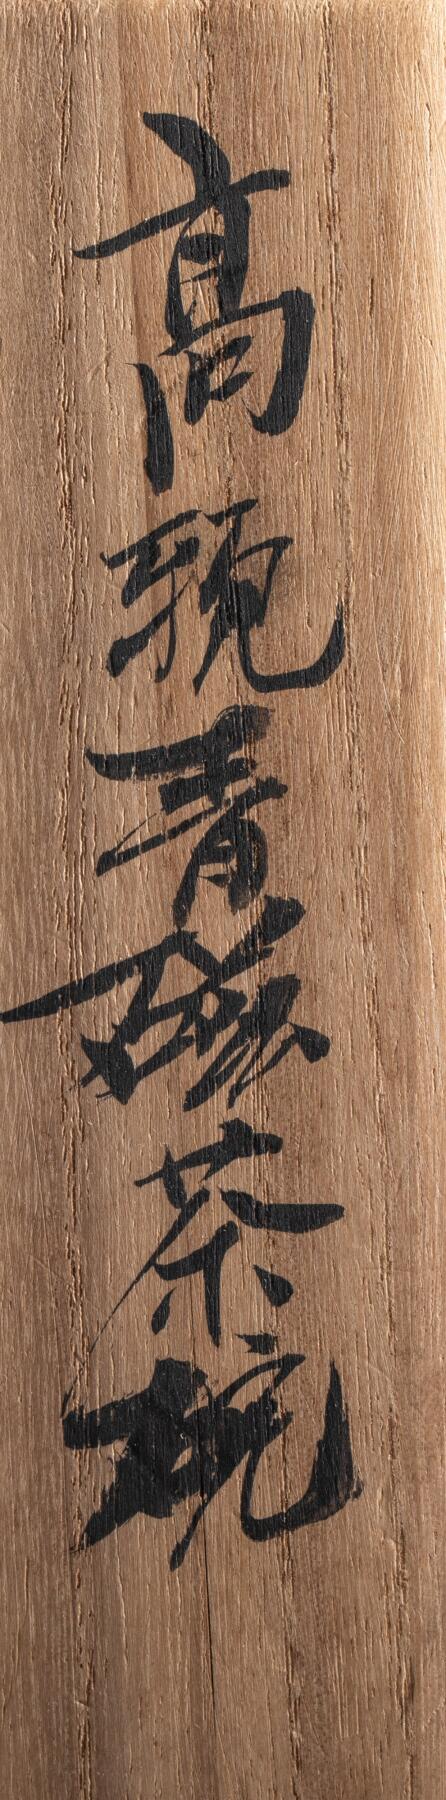 高麗青磁茶碗